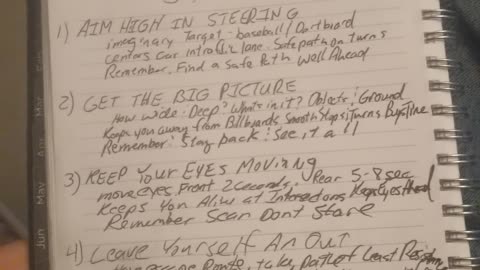 1) AIM HIGH IN STEERING
imaginary Target - baseball / Dartboard
Centers Car in traffic lane. Safe path on turns
Remember. Find a safe Path Well Ahead
2) GET THE BIG PICTURE
How wide: Deep? Whats in it? Objects: Ground
Keeps you away from Billboards Smooth stops: Turns
Remember: Stay back: See it all
3) KEEP YOUR EYES MOVING
move eyes Front 2 seconds: Rear 5-8 sec
Keeps You Alive at Intersections Keeps eyes
Remember Scan Dont Stare
4) Leave Yourself An Out
take Path of Least
Mar
Apr
May
Jun